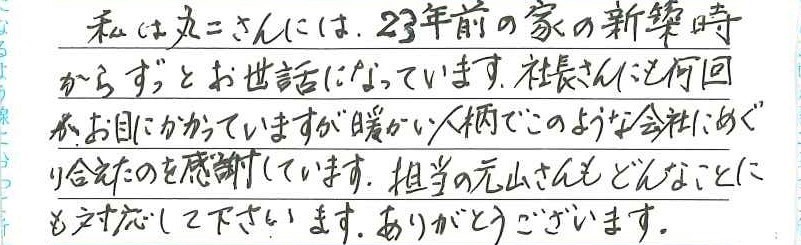 私は丸二さんには、23年前の家の新築時
からずっとお世話になっています。社長さんにも何回
か、お目にかかっていますが暖かい人柄でこのような会社にめぐ
り合えたのを感謝しています。担当の元山さんもどんなことに
も対応して下さいます。ありがとうございます。